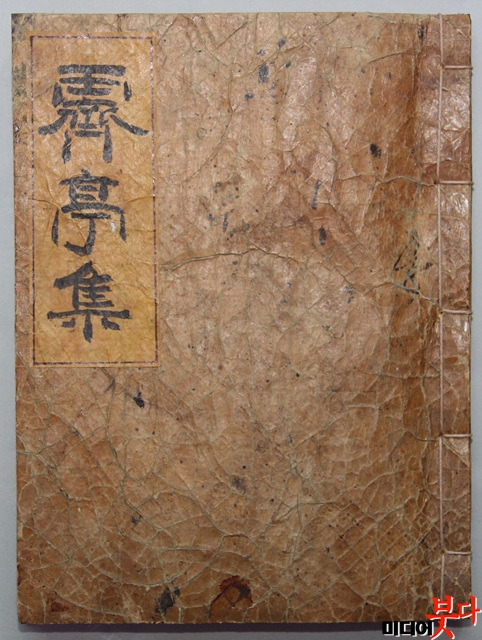 霽亭集
미디어붓다